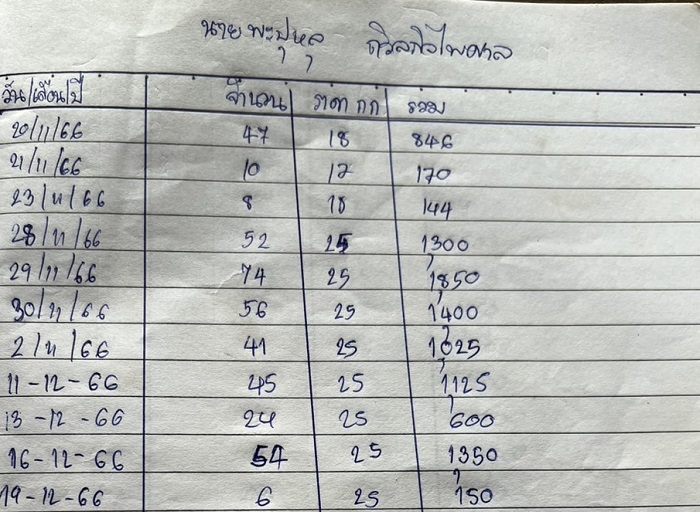 นาย พะปุหลุ ถวิลกิจไพศาล
วัน/เดือน/ปี จำนวน ราคา กก รวม
20/11/66 47 18 846
21/11/66 10 17 170
23/11/66 8 18 144
28/11/66 52 25 1300
29/11/66 74 25 1,850
30/11/66 56 25 1,400
2/11/66 41 25 1,025
11-12-66 45 25 1,125
13-12-66 24 25 600
16-12-66 54 25 1350
19-12-66 6 25 150